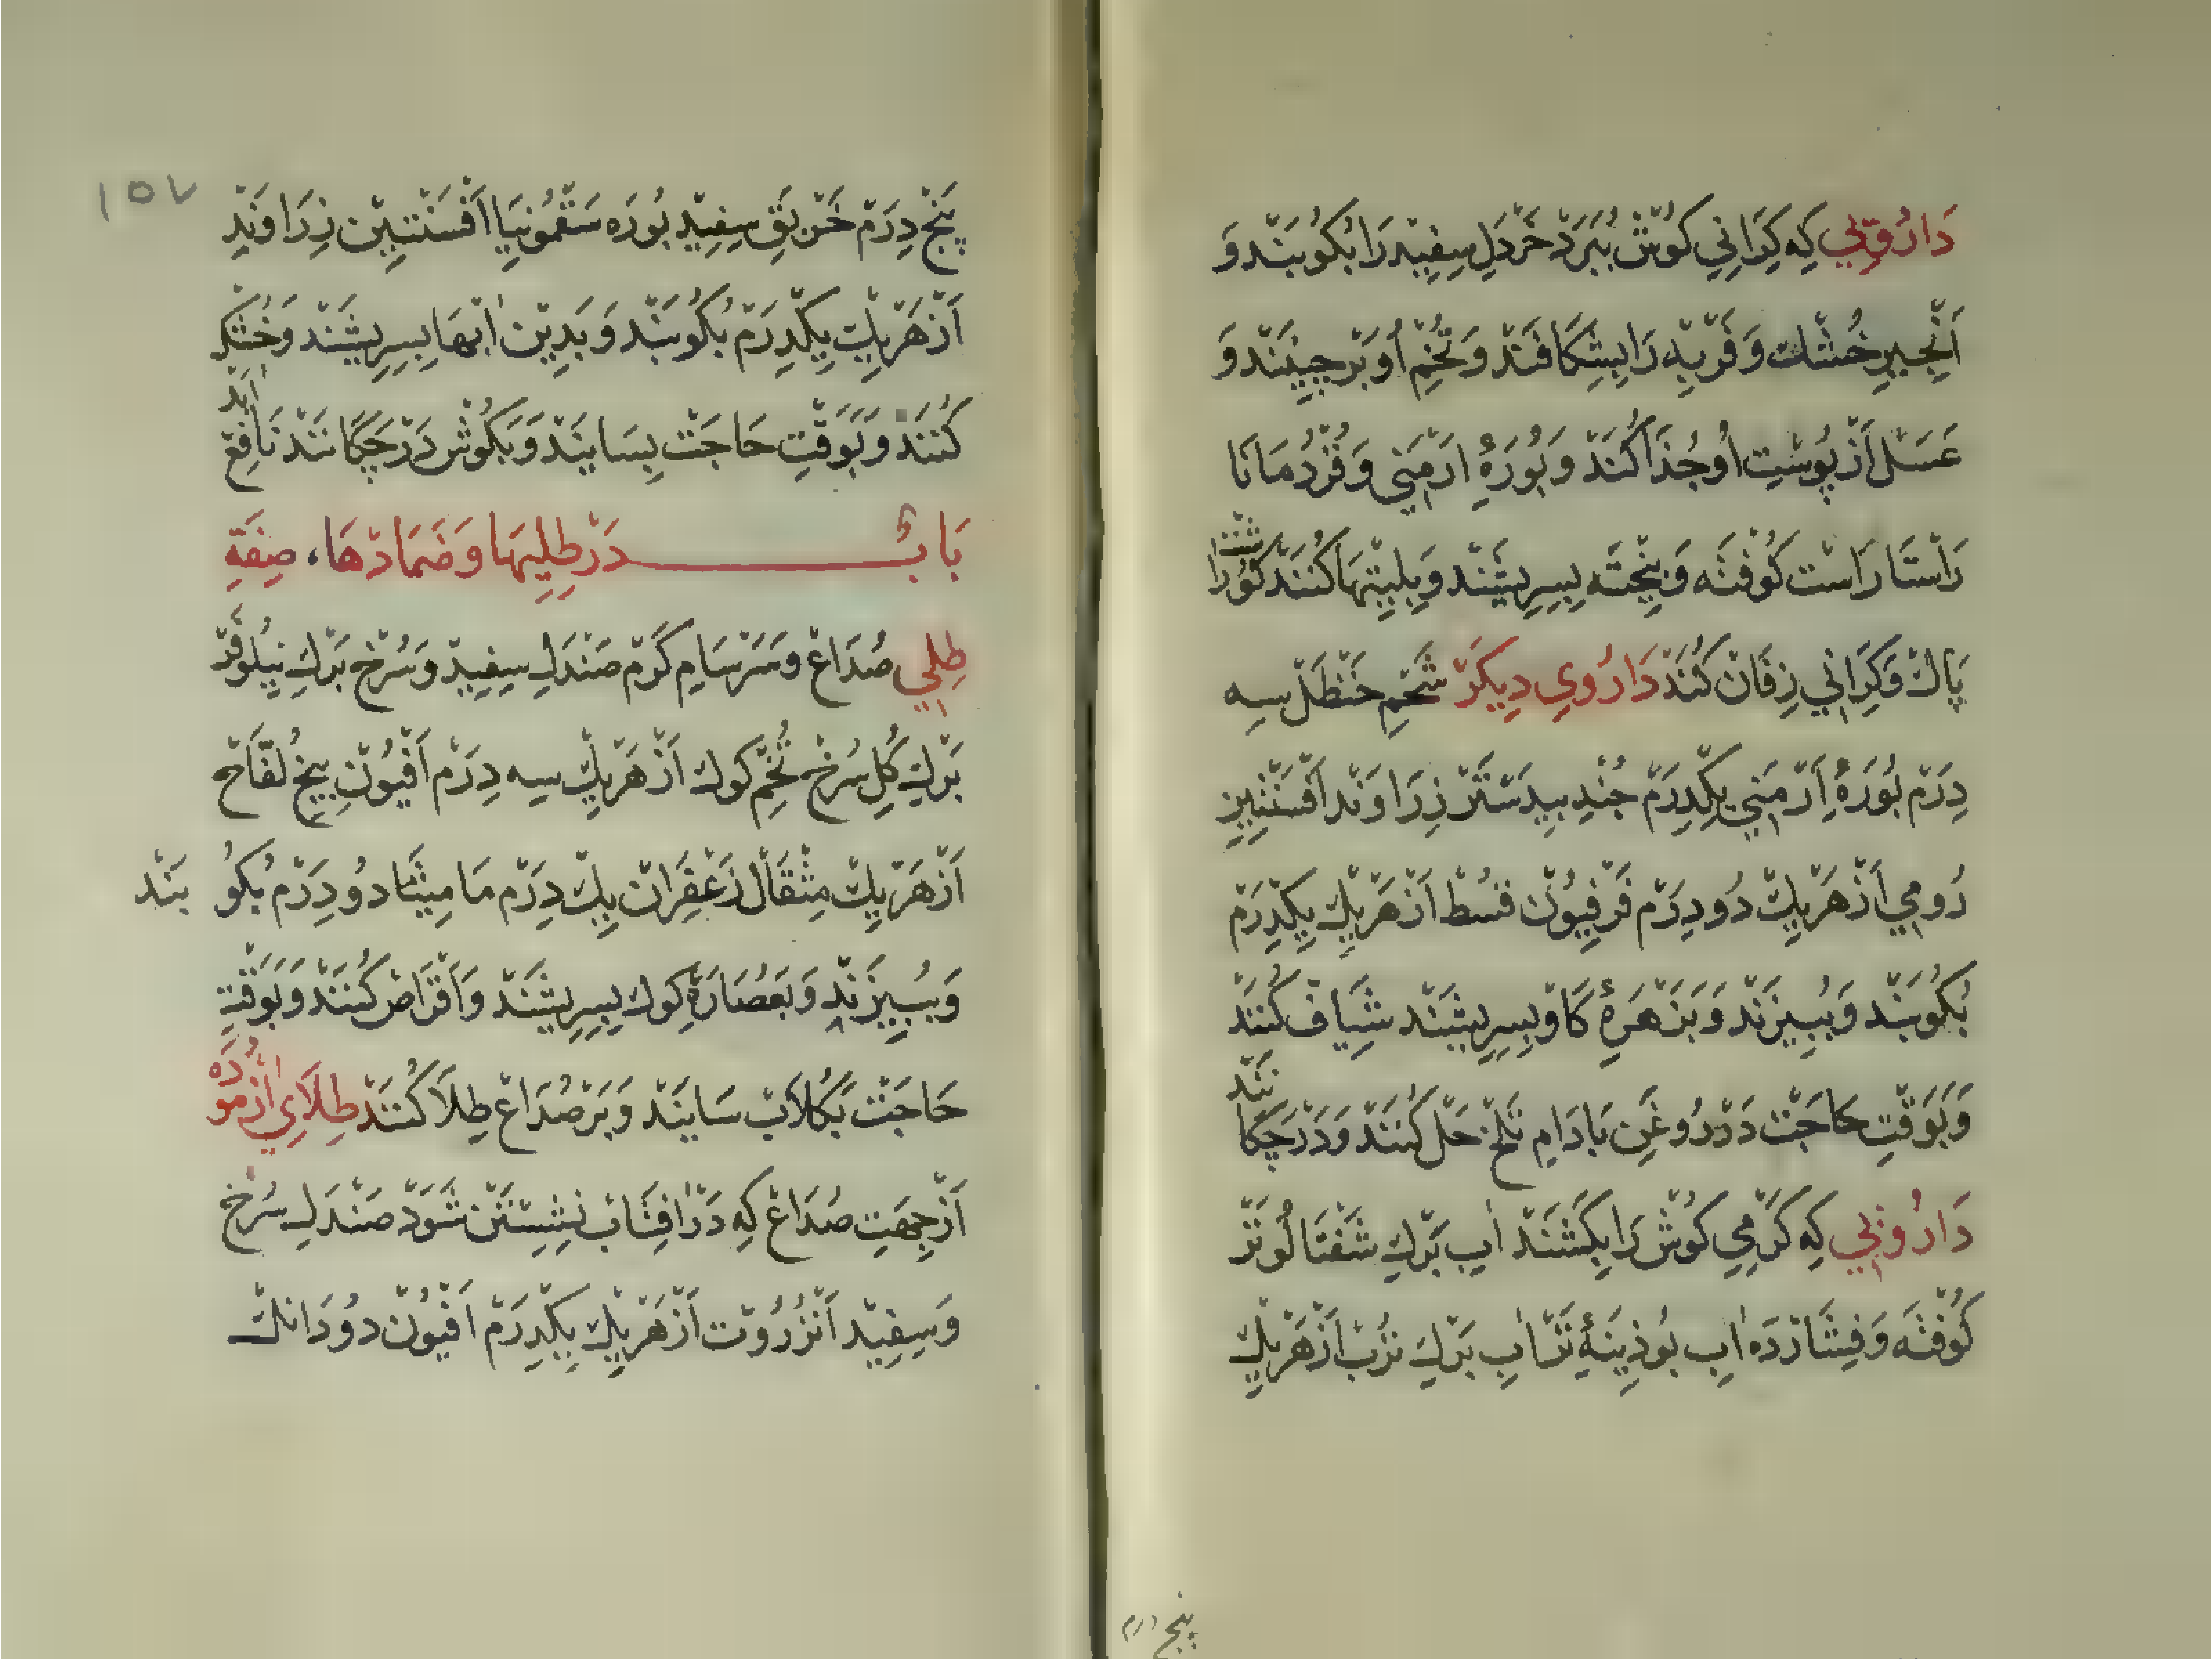 دَارُوئي كِه كِرَانِي كُوشْ بِبَرَدْ خَرْدَلِ سِفِيدْ رَا بُكُوبَنْد وَ
اَنْجِيرِ خُشْك وَ فَرْبِه رَا بِشِكَافَنْد وَ تُخْمِ اُو بَرْجِينَنْد وَ
عَسَل اَزْ پُوسْتِ اُو جُذَا كُنَنْد وَ بُورَۀِ اَرْمَنِي وَ قُرْدُمَانَا
رَاسْتَا رَاسْت كُوفْتَه وَ بِيخْتَه بِسِرِيشَنْد وَ پِلِيتَهَا كُنَنْد كُوشْ رَا
پَاكْ وَ كِرَانِي زِفَانْ كُنَد دَارُوي دِيكَرْ شَحْمِ حَنْظَلْ سِه
دِرَمْ بُورَۀِ اَرْمَنِي يِكْدِرَمْ جُنْدِ بِيدَسْتَرْ زِرَاوَنْد اَفْسَنْتِينِ
رُومِي اَزْ هَرْ يِكْ دُو دِرَمْ فَرْفِيُونْ قُسْطْ اَزْ هَرْ يِكْ يِكْدِرَمْ
بُكُوبَنْد وَ بِبِيزَنْد وَ بَزَهْرَۀِ كَاوْ بِسِرِيشَنْد شِيَافْ كُنَنْد
وَ بَوَقْتِ حَاجَتْ دَرْ رُوغَنِ بَادَامِ تَلْخْ حَلْ كُنَنْد وَ دَرْ چَكَانَنْد
دَارُوئي كِه كَرْمِي كُوشْ رَا بِكُشَنْد اٰبِ بَرْكِ شَفْتَالُو تَرْ
كُوفْتَه وَ فِشَارْدَه اٰبِ بُوذِينَۀِ تَرْ اٰبِ بَرْكِ تُرُبْ اَزْ هَرْ يِكْ
پنج درم
۱۵۷
پَنْجْ دِرَمْ خَرْبَقِ سِفِيدْ بُورَه سَقَمُونِيَا اَفْسَنْتِينْ زِرَاوَنْد
اَزْ هَرْ يِكْ يِكْدِرَمْ بُكُوبَنْد وَ بَدِينْ اٰبْهَا بِسِرِيشَنْد وَ خُشْك
كُنَنْد وَ بَوَقْتِ حَاجَتْ بِسَايَنْد وَ بَكُوشْ دَرْ چَكَانَنْد نَافِع اٰيَد
بَابٌ دَرْ طِلِيهَا وَ ضَمَادْهَا، صِفَةِ
طِلِي صُدَاعْ وَ سَرْسَامِ كَرْمْ صَنْدَلِ سِفِيدْ وَ سُرْخْ بَرْكِ نِيلُوفَرْ
بَرْكِ كُلِ سُرْخْ تُخْمِ كُوكْ اَزْ هَرْ يِكْ سِه دِرَمْ اَفْيُونْ بِيخِ لُفَّاحْ
اَزْ هَرْ يِكْ مِثْقَالْ زَعْفَرَانْ يِكْ دِرَمْ مَامِيثَا دُو دِرَمْ بُكُوبَنْد
وَ بِبِيزَنْد وَ بَعُصَارَۀِ كُوكْ بِسِرِيشَنْد وَ اَقْرَاصْ كُنَنْد وَ بَوَقْتِ
حَاجَتْ بَكُلَابْ سَايَنْد وَ بَرْ صُدَاعْ طِلَا كُنَنْد طِلَايِ اٰزْمُودَه
اَزْ جِهَتِ صُدَاعْ كِه دَرْ اٰفِتَابْ نِشِسْتَنْ شَوَدْ صَنْدَلِ سُرْخْ
وَ سِفِيدْ اَنْزَرُوتْ اَزْ هَرْ يِكْ يِكْدِرَمْ اَفْيُونْ دُو دَانْكْ